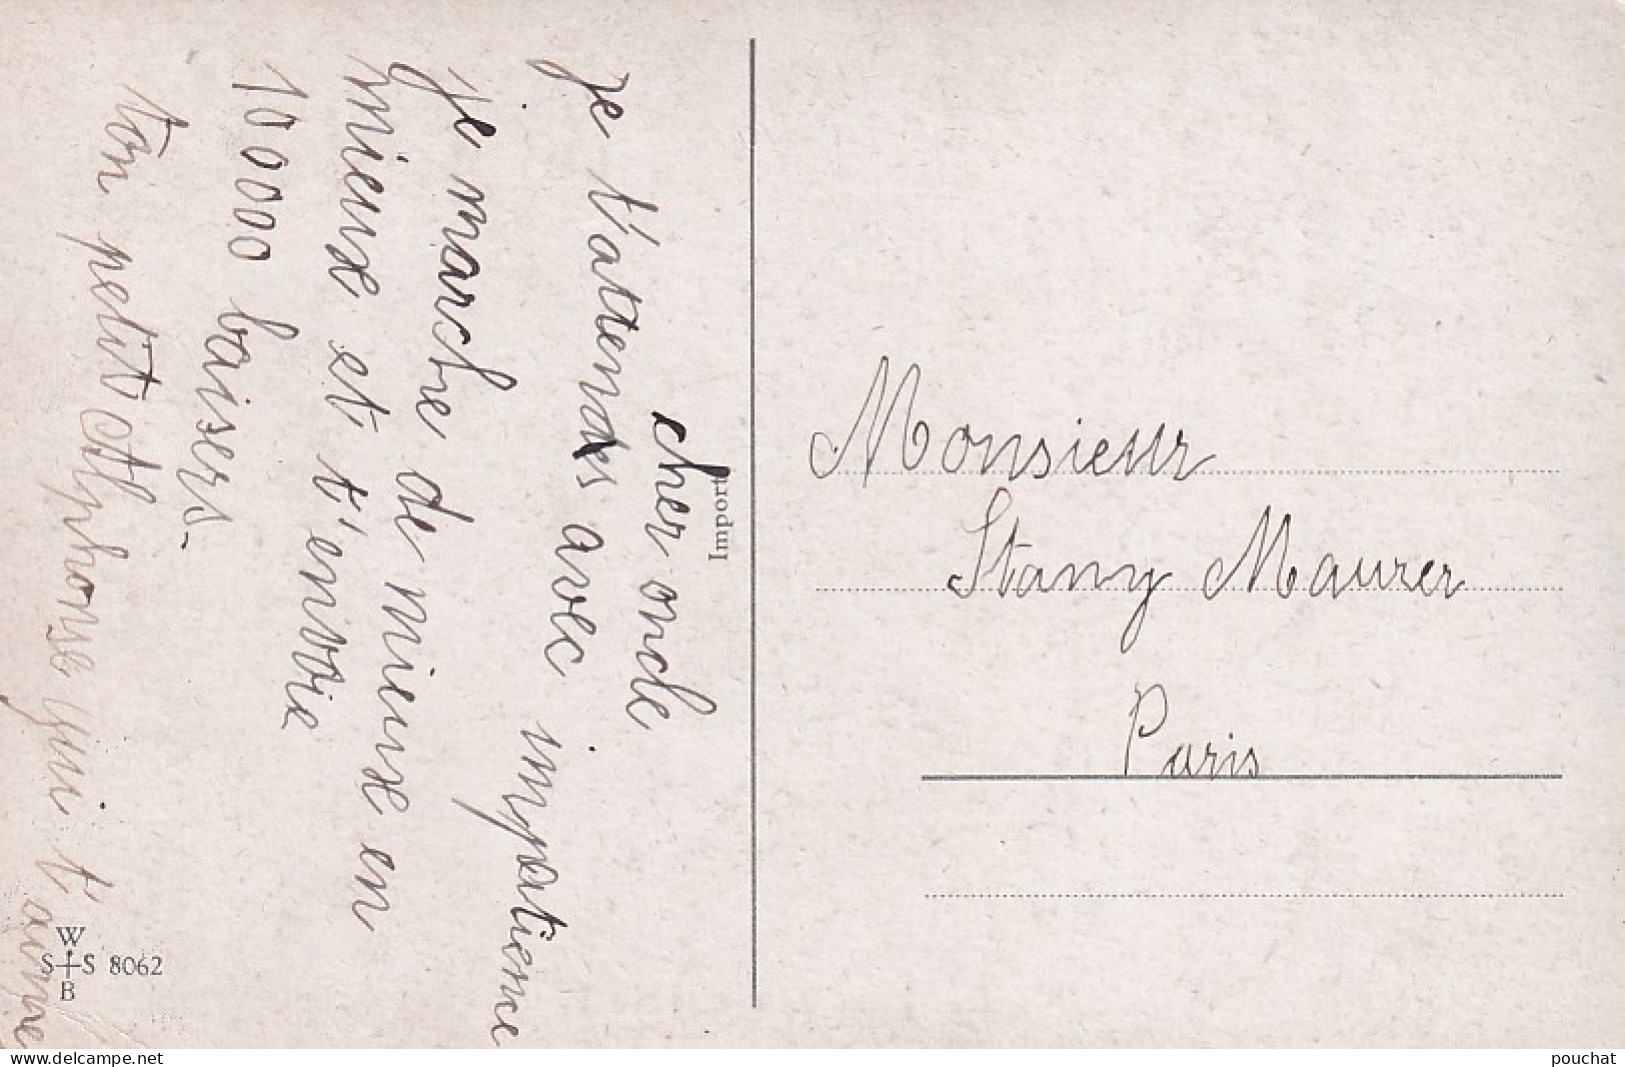 cher oncle
je t'attends avec impatience
je marche de mieux en
mieux et t'envoie
10 000 baisers-
ton petit Alphonse qui t'aime
Import
Monsieur
Stany Maurer
Paris
W
S S 8062
B
www.delcampe.net
pouchat